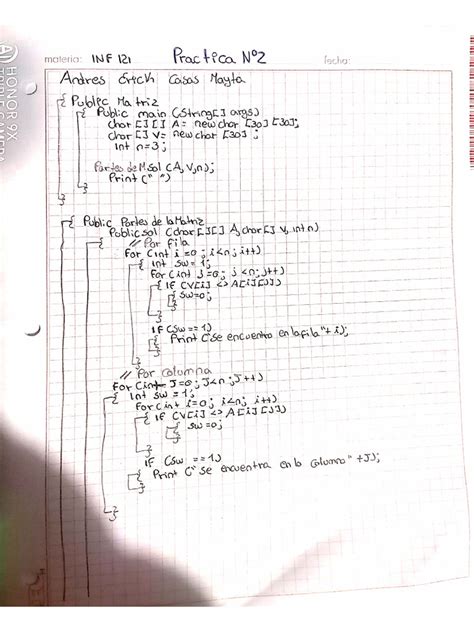 materia: INF 121 Practica Nº2 fecha:
Andres Erick Casas Mayta
{ Public Matriz
{ Public main (String[] args)
char [][] A = new char [30] [30];
char [] V = new char [30] ;
int n=3;
Partes de M sol (A,V,n);
Print (" ")
}
}
{ Public Partes de la Matriz
Public sol (char [][] A, char [] V, int n)
{ // Por fila
For (int i=0 ; i<n; i++)
{ int sw = 1;
For (int j=0; j<n; j++)
{ IF (V[i] <> A[i][j])
{ sw=0;
}
}
IF (sw == 1)
{ Print ("Se encuentra en la fila"+ i);
}
}
// Por Columna
For (int J=0; J<n ; J++)
{ int sw = 1;
For (int i=0; i<n; i++)
{ IF (V[i] <> A[i][J])
{ sw=0;
}
}
IF (sw == 1)
{ Print ("Se encuentra en la Columna" +J);
}
}
}
}
HONOR 9X